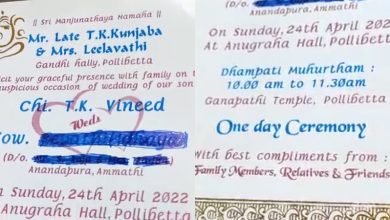 || Sri Manjunathaya Namaha ||
Mr. Late T.K.Kunjaba
& Mrs. Leelavathi
Gandhi hally, Pollibetta
icit your graceful presence with family on t
auspicious occasion of wedding of our son
Chi. T.K. Vineed
Weds
Sow.
(D/o.
Anandapura, Ammathi
n Sunday, 24th April 2022
Anugraha Hall, Pollibetta
(D/o.
Anandapura, Ammathi
On Sunday, 24th April 2022
At Anugraha Hall, Pollibetta
Dhampati Muhurtham :
10.00 am to 11.30am
Ganapathi Temple, Pollibetta
One day Ceremony
With best compliments from :
Family Members, Relatives & Friends